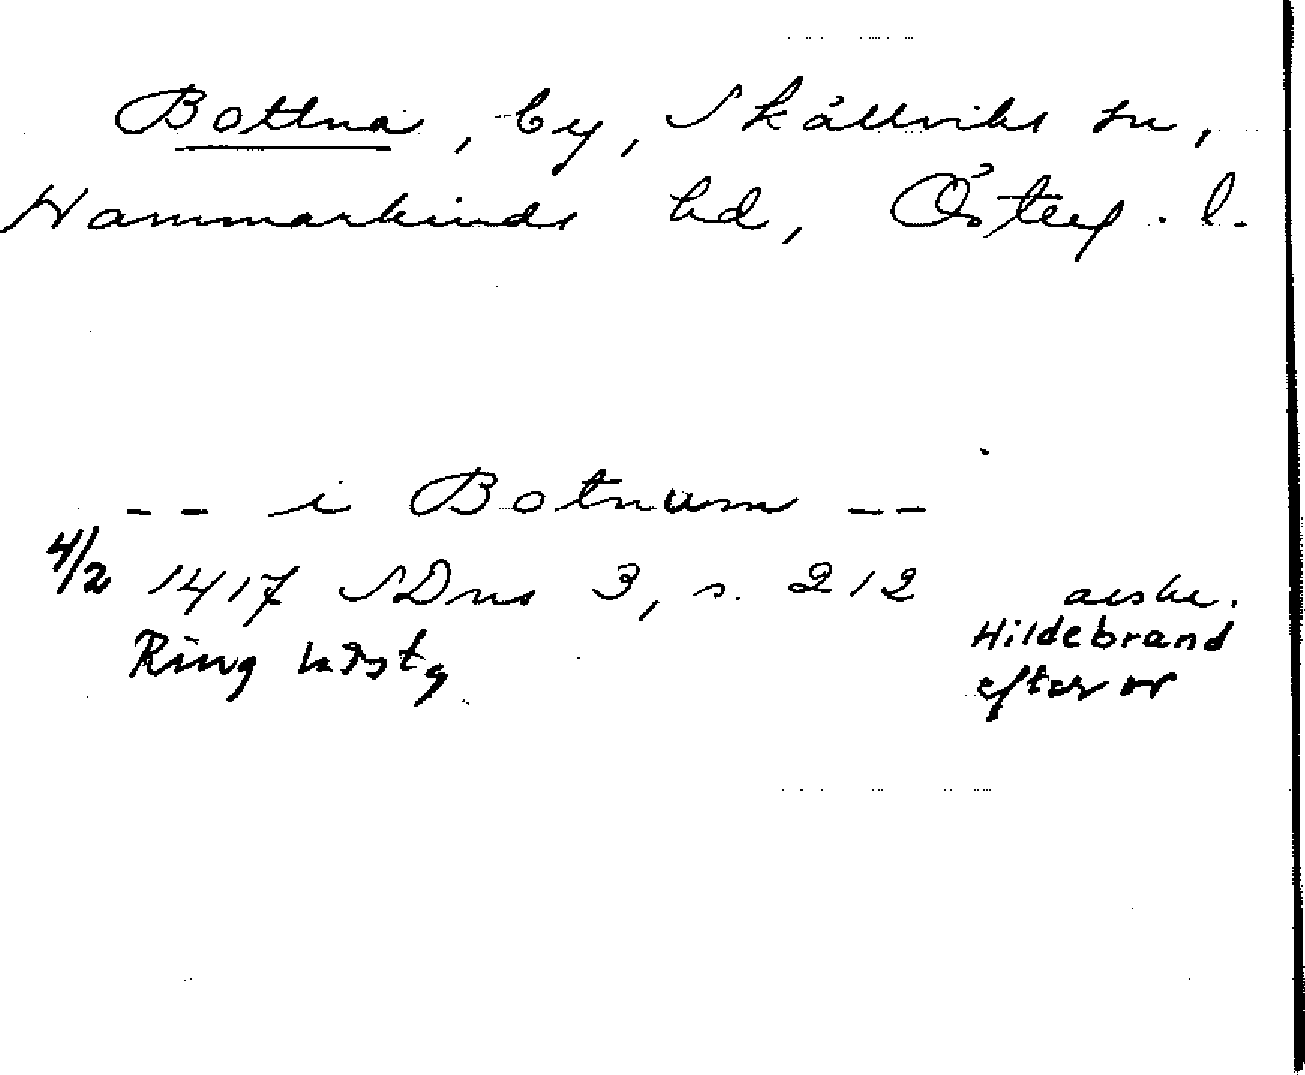 Bottna, by, Skällviks sn,
Hammarkinds hd, Österg. l.
-- i Botnum --
4/2 1417 SDns 3, s. 212 avskr.
Ring Hildebrand
efter or